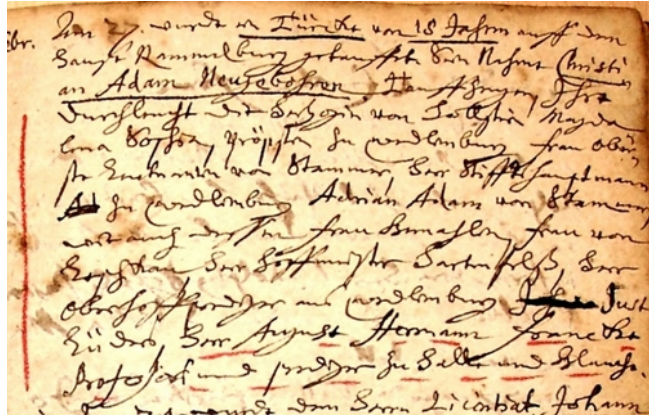 br. Den 27. wurdt ein Türcke von 18 Jahren auff dem
Hauß Rammelburg getaufft Sein Nahme Christi
an Adam Neugebohren, Tauffzeugen Ihre
Durchleucht die Hertzogin von Magda
lena Sophia, Pröpstin zu Qvedlenburg, Frau Obri
ste von Stammer, Herr Stiffts hauptmann
zu Qvedlenburg Adrian Adam von Stammer
wie auch dessen Frau Gemahlen, Frau von
Herr Hoffmeister Herr
Oberhoffprediger aus Qvedlenburg Just
Lüders, Herr August Hermann Francke
Professor und prediger zu Halle und Glauche.
wurdt dem Herrn Licentiat Johann